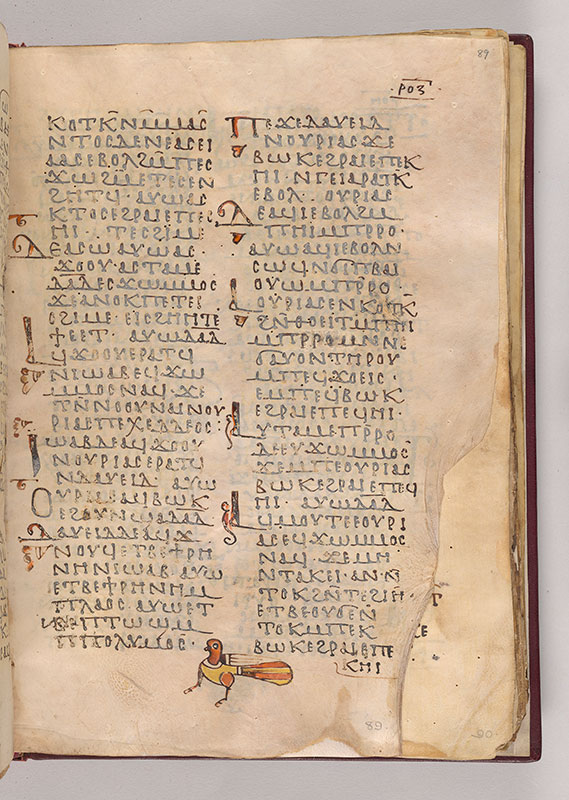 ·ⲣⲟⲍ
89
ⲕⲟⲧⲕ̅ⲛⲙ̅ⲙⲁⲥ̅
ⲛⲧⲟⲥⲇⲉⲛⲉⲁⲥⲉⲓ
ⲁⲁⲥⲉⲃⲟⲗϩⲙⲡⲉⲥ
ϫⲱϩⲙⲉⲧⲉⲥⲉⲛ
ϩⲏⲧϥ·ⲁⲩⲱⲁⲥ
ⲕⲧⲟⲥⲉϩⲣⲁⲓⲉⲡⲉⲥ
ⲏⲓ·ⲧⲉⲥϩⲓⲙⲉ
ⲇⲉⲁⲥⲱⲁⲩⲱⲁⲥ
ϫⲟⲟⲩ·ⲁⲥⲧⲁⲙⲉ
ⲇⲁⲇⲉⲥϫⲱⲙⲙⲟⲥ
ϫⲉⲁⲛⲟⲕⲡⲉⲧⲉⲓ
ⲥϩⲓⲙⲉ·ⲉⲓⲥϩⲏⲏⲧⲉ
ϯⲉⲉⲧ·ⲁⲩⲱⲇⲁⲇ
ⲁϥϫⲟⲟⲩⲉⲣⲁⲧϥ
ⲛⲓⲱⲁⲃⲉϥϫⲱ
ⲙⲙⲟⲥⲛⲁϥ·ϫⲉ
ⲧⲛ̅ⲛⲟⲟⲩⲛⲁⲓⲛⲟⲩ
ⲣⲓⲁⲥⲡⲉⲭⲉⲇⲇⲉⲟⲥ·
ⲓⲱⲁⲃⲇⲉⲁϥϫⲟⲟⲩ
ⲛⲟⲩⲣⲓⲁⲥⲉⲣⲁⲧϥ
ⲛⲇⲁⲩⲉⲓⲇ·ⲁⲩⲱ
ⲟⲩⲣⲓⲁⲥⲁϥⲃⲱⲕ
ⲉϩⲟⲩⲛϣⲁⲇⲁⲇ
ⲇⲁⲩⲉⲓⲇⲇⲉⲁϥϫ
ⲛⲟⲩϥⲉⲧⲃⲉϯⲣⲏ
ⲛⲏⲛⲓⲱⲁⲃ·ⲁⲩⲱ
ⲉⲧⲃⲉϯⲣⲏⲛⲏⲙ
ⲡⲗⲁⲟⲥ·ⲁⲩⲱⲉⲧ
ⲃⲉⲡⲧⲱⲱⲙ
ⲡⲡⲟⲗⲩⲙⲟⲥ·
ⲡⲉϫⲉⲇⲁⲩⲉⲓⲇ
ⲛⲟⲩⲣⲓⲁⲥϫⲉ
ⲃⲱⲕⲉϩⲣⲁⲓⲉⲡⲉⲕ
ⲏⲓ·ⲛⲅⲉⲓⲁⲣⲁⲧⲕ
ⲉⲃⲟⲗ·ⲟⲩⲣⲓⲁⲥ
ⲇⲉⲁϥⲓⲉⲃⲟⲗϩⲙ
ⲡⲏⲓⲙⲡⲣⲣⲟ
ⲁⲩⲱⲁϥⲓⲉⲃⲟⲗⲛ
ⲥⲱϥⲛϭⲓⲡⲃⲁⲓ
ⲟⲩⲱⲙⲡⲣⲣⲟ·
ⲟⲩⲣⲓⲁⲥⲉⲛⲕⲟⲧⲕ
ϩⲛⲑⲟⲉⲓⲧⲙⲡⲏⲓ
ⲙⲡⲣⲣⲟⲙⲛⲛⲉ
ϭⲁⲩⲟⲛⲧⲏⲣⲟⲩ
ⲙⲡⲉϥϫⲟⲉⲓⲥ·
ⲉⲙⲡⲉϥⲃⲱⲕ
ⲉϩⲣⲁⲓⲉⲡⲉϥⲏⲓ·
ⲁⲩⲧⲁⲙⲉⲡⲣⲣⲟ
ⲇⲉⲉⲩϫⲱⲙⲙⲟⲥ
ϫⲉⲙⲡⲉⲟⲩⲣⲓⲁⲥ
ⲃⲱⲕⲉϩⲣⲁⲓⲉⲡⲉϥ
ⲏⲓ·ⲁⲩⲱⲇⲁⲇ
ⲁϥⲙⲟⲩⲧⲉⲉⲟⲩⲣⲓ
ⲁⲥⲉϥϫⲱⲙⲙⲟⲥ
ⲛⲁϥ·ϫⲉⲙⲏ
ⲛⲧⲁⲕⲉⲓ·ⲁⲛ·ⲛ̅
ⲧⲟⲕϩⲛ̅ⲧⲉϩⲓⲏ·
ⲉⲧⲃⲉⲟⲩϭⲉⲛ̅
ⲧⲟⲕⲙⲡⲉⲕ
ⲃⲱⲕⲉϩⲣⲁⲓⲉⲡⲉ
ⲕⲏⲓ
89.
90